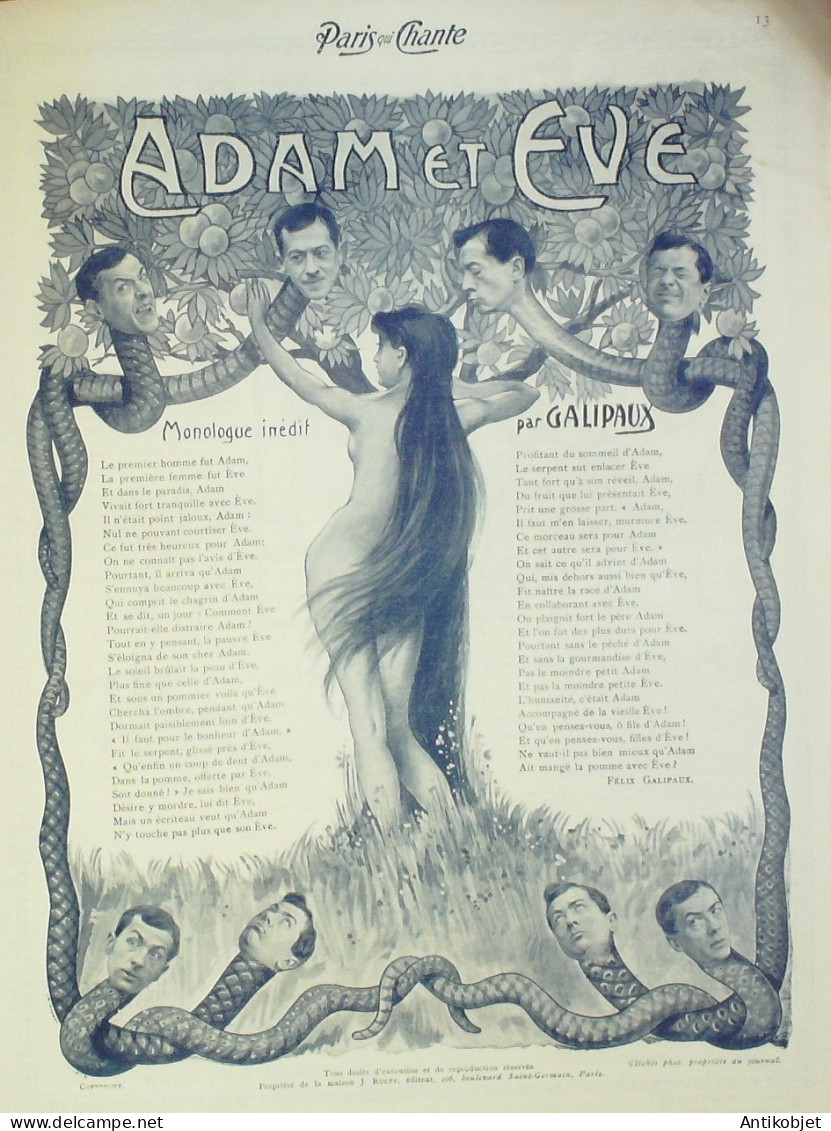 Paris qui Chante
13
ADAM ET EVE
Monologue inédit
par GALIPAUX
Le premier homme fut Adam,
La première femme fut Ève
Et dans le paradis, Adam
Vivait fort tranquille avec Ève.
Il n'était point jaloux, Adam :
Nul ne pouvant courtiser Ève.
Ce fut très heureux pour Adam;
On ne connaît pas l'avis d'Ève.
Pourtant, il arriva qu'Adam
S'ennuya beaucoup avec Ève,
Qui comprit le chagrin d'Adam
Et se dit, un jour : Comment Ève
Pourrait-elle distraire Adam ?
Tout en y pensant, la pauvre Ève
S'éloigna de son cher Adam.
Le soleil brûlait la peau d'Ève,
Plus fine que celle d'Adam,
Et sous un pommier voila qu'Ève
Chercha l'ombre, pendant qu'Adam
Dormait paisiblement loin d'Ève.
« Il faut pour le bonheur d'Adam, »
Fit le serpent, glissé près d'Ève,
« Qu'enfin un coup de dent d'Adam,
Dans la pomme, offerte par Ève,
Soit donné ! » Je sais bien qu'Adam
Désire y mordre, lui dit Ève,
Mais un écriteau veut qu'Adam
N'y touche pas plus que son Ève.
Profitant du sommeil d'Adam,
Le serpent sut enlacer Ève
Tant fort qu'à son réveil, Adam,
Du fruit que lui présentait Ève,
Prit une grosse part. « Adam,
Il faut m'en laisser, murmure Ève.
Ce morceau sera pour Adam
Et cet autre sera pour Ève. »
On sait ce qu'il advint d'Adam
Qui, mis dehors aussi bien qu'Ève,
Fit naître la race d'Adam
En collaborant avec Ève.
On plaignit fort le père Adam
Et l'on fut des plus durs pour Ève.
Pourtant sans le péché d'Adam
Et sans la gourmandise d'Ève,
Pas le moindre petit Adam
Et pas la moindre petite Ève.
L'humanité, c'était Adam
Accompagné de la vieille Ève !
Qu'en pensez-vous, ô fils d'Adam !
Et qu'en pensez-vous, filles d'Ève !
Ne vaut-il pas bien mieux qu'Adam
Ait mangé la pomme avec Ève ?
FÉLIX GALIPAUX.
Clichés phot. propriété du journal.
Tous droits d'exécution et de reproduction réservés.
COPYRIGHT.
Propriété de la maison J. RUEFF, éditeur, 106, boulevard Saint-Germain, Paris.
Antikobjet